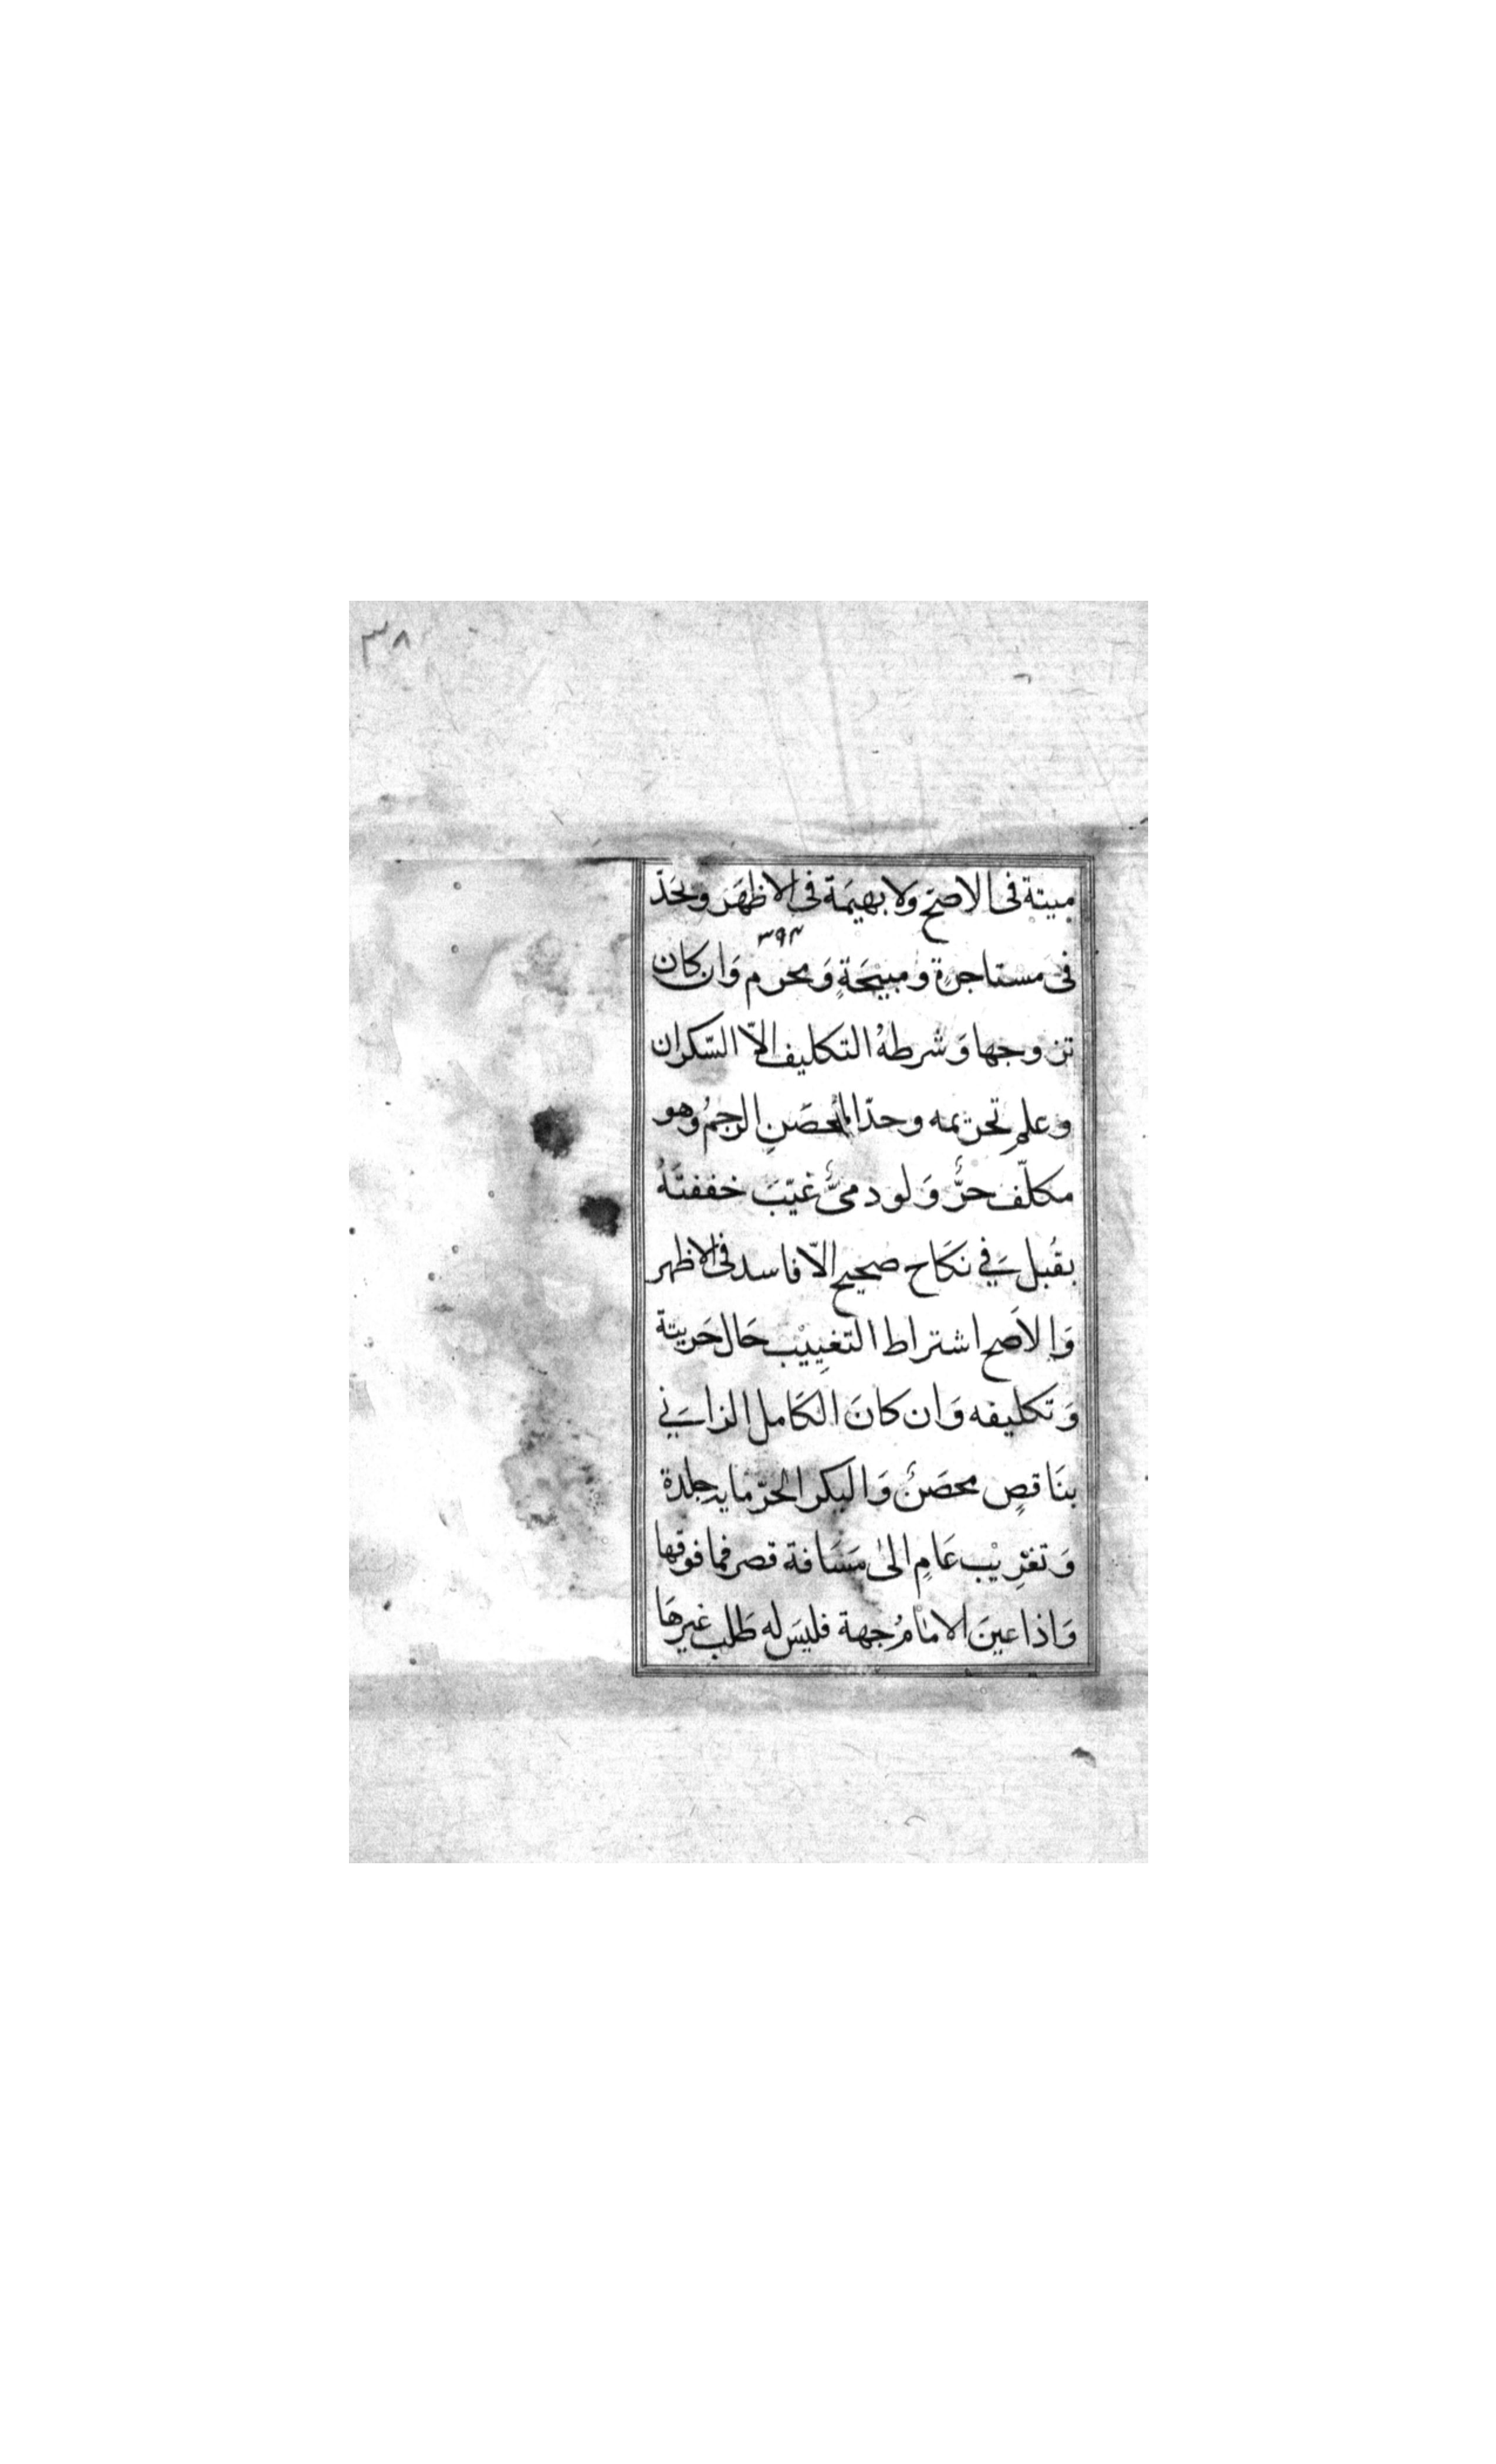 ٣٨
ميتة فى الاصح ولا بهيمَة فى الاظهَرَ ويحَدّ
٣٩٣
فى مستاجرة ومبيْحَةٍ وَمحرم وَان كان
تزوجها وَشرطهُ التكليف الاّ السّكران
وعلم تحريمه وحدّ المحصَنِ الرجمُ وهو
مكلّف حرٌّ وَلو دمىٌّ غيّبَ حففتَهُ
بقُبل فِي نكَاح صحيح الاّ فاسد فى الاظهر
وَالاَصح اشتراط التغِييْب حَال حَريتة
وَتكليفه وَان كانَ الكَامل الزانِي
بنَاقصٍ محصَنٌ وَالبكر الحرّ مايه جلدة
وَتغرِيْب عَامٍ الىٰ مَسَافة قصر فما فوقها
وَاذا عينَ الامَامُ جهة فليسَ له طَلب غيرهَا